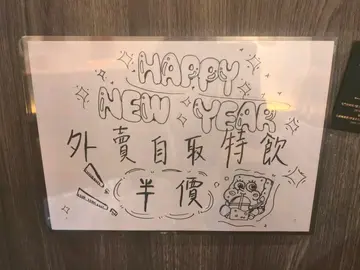 HAPPY
NEW YEAR
外賣自取特飲
半價